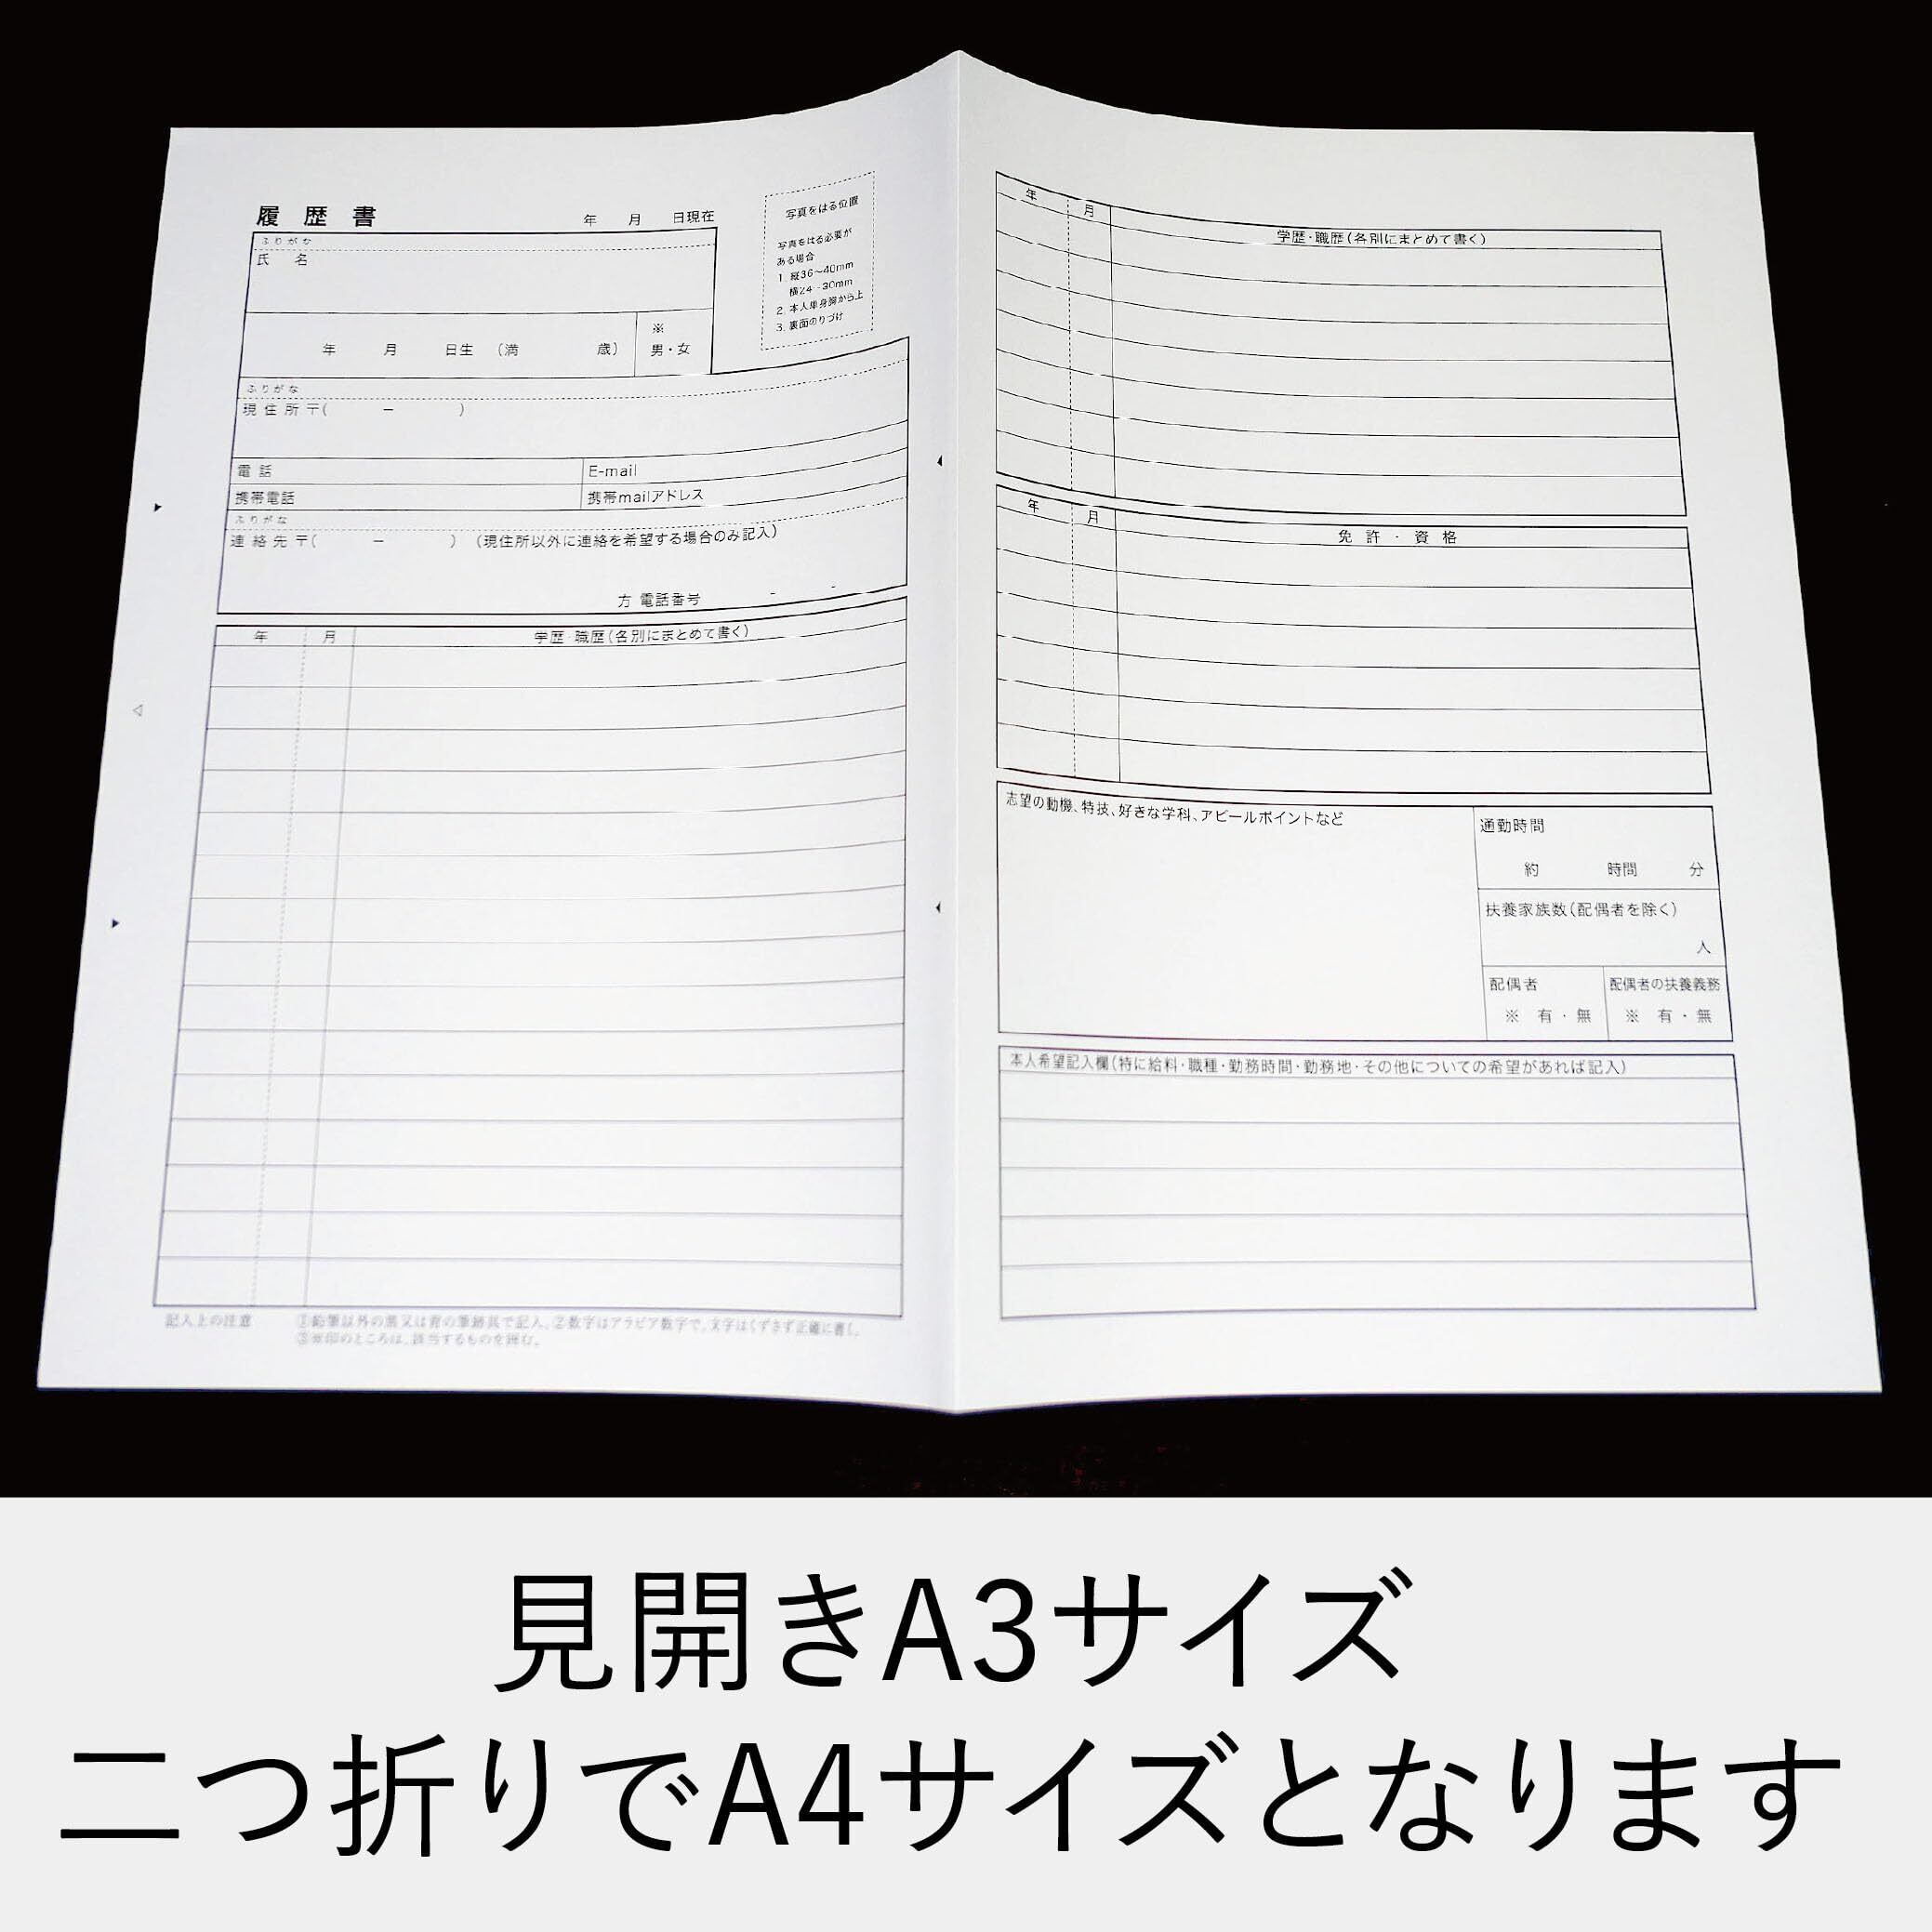 履歴書
年 月 日現在
ふりがな
氏 名
年 月 日生 (満 歳)
※
男・女
写真をはる位置
写真をはる必要が
ある場合
1. 縦36〜40mm
横24〜30mm
2. 本人単身胸から上
3. 裏面のりづけ
ふりがな
現住所 〒( − )
電話
E-mail
携帯電話
携帯mailアドレス
ふりがな
連絡先 〒( − ) (現住所以外に連絡を希望する場合のみ記入)
方 電話番号 - -
年 月 学歴・職歴(各別にまとめて書く)
記入上の注意 ①鉛筆以外の黒又は青の筆記具で記入。②数字はアラビア数字で、文字はくずさず正確に書く。
③※印のところは、該当するものを囲む。
年 月 学歴・職歴(各別にまとめて書く)
年 月 免許・資格
志望の動機、特技、好きな学科、アピールポイントなど
通勤時間
約 時間 分
扶養家族数(配偶者を除く)
人
配偶者
※ 有・無
配偶者の扶養義務
※ 有・無
本人希望記入欄(特に給料・職種・勤務時間・勤務地・その他についての希望があれば記入)
見開きA3サイズ
二つ折りでA4サイズとなります